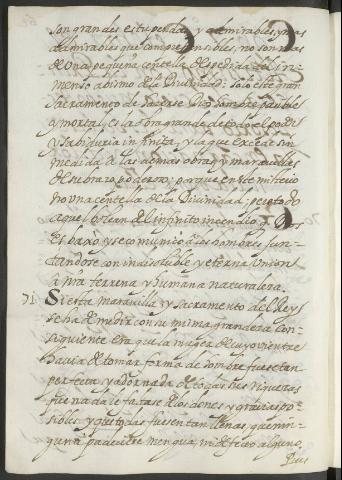 son grandes estupendas y admirables, mas
admirables que comprensibles, no son mas
de una pequeña centella despedida del in-
menso abismo de la Diuinidad: solo este gran
Sacramento de hacerse Dios hombre pasible
y mortal es la obra grande de todo el poder
y sabiduria infinita, y la que excede sin
medida a las demas obras y marauillas
de su brazo poderoso; porque en este misterio
no una centella de la Diuinidad; pero todo
aquel bolcan del infinito incendio, que Dios
es baxò y se comunicò a los hombres jun-
tandose con indisoluble y eterna union
a nra terrena y humana naturaleza.
71. Si esta marauilla y sacramento del Rey
se ha de medir con su misma grandeza con-
siguiente era que la muger de cuyo vientre
hauia de tomar forma de hombre fuese tan
perfecta y adornada de todas sus riquezas
que nada le faltase de los dones y gracias po-
sibles y que todas fuesen tan llenas, que nin-
guna padeciese mengua, ni defecto alguno.
Pues